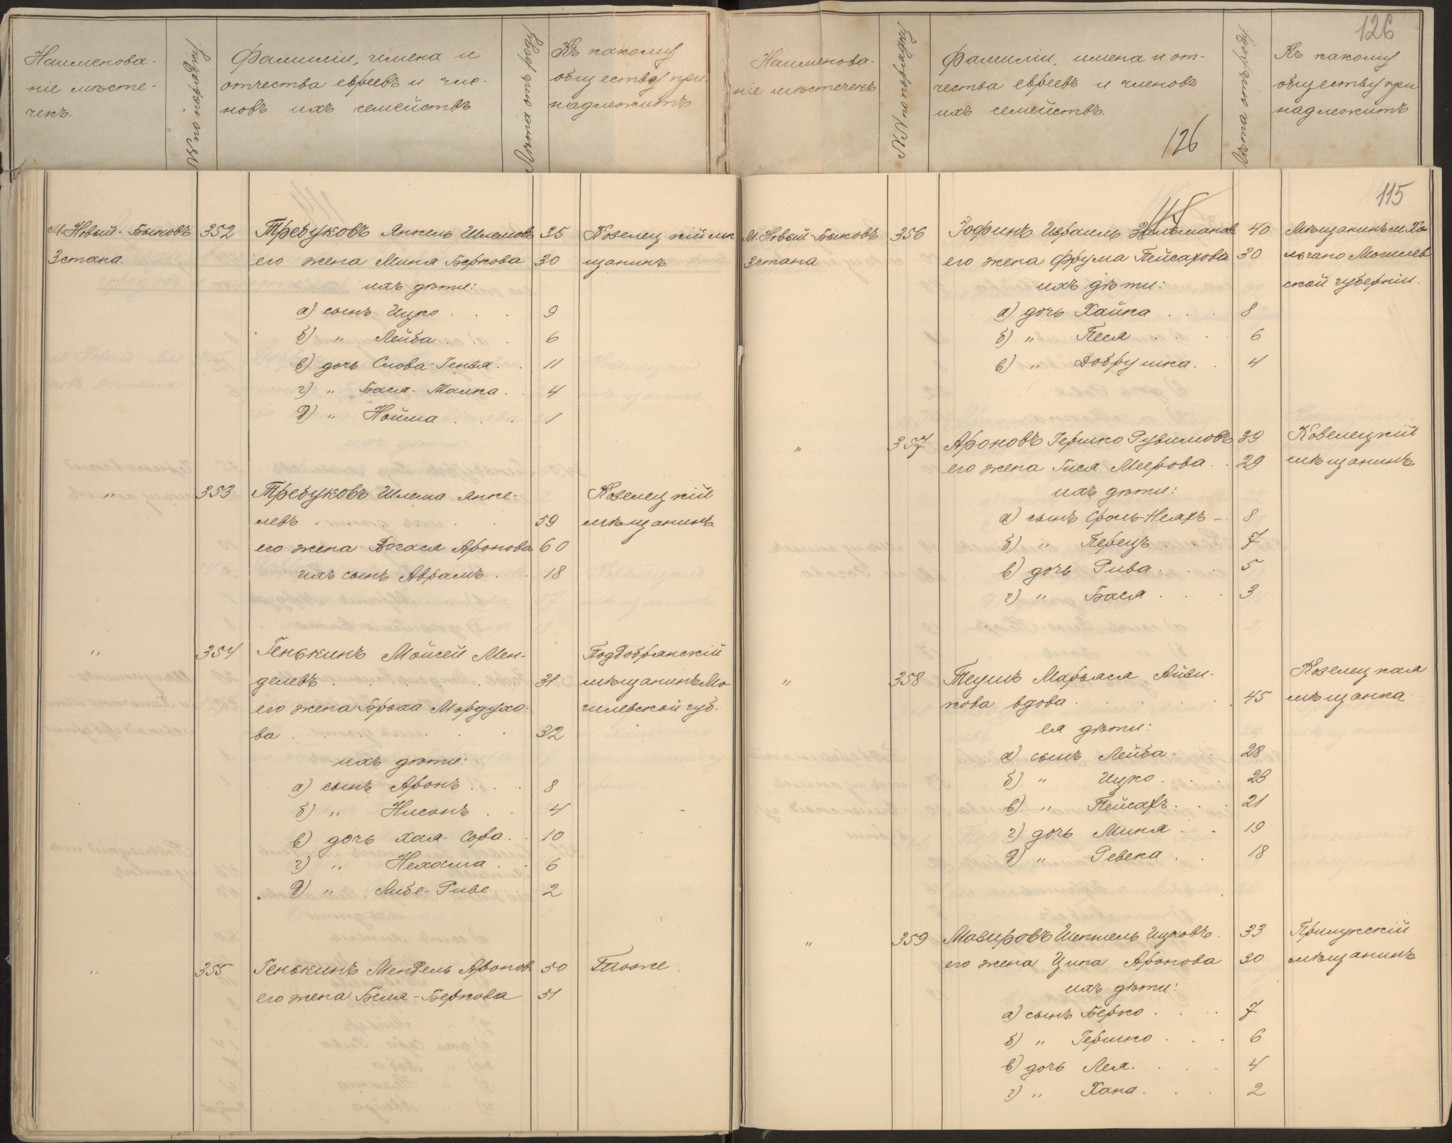 Наименова-
ніе мѣсте-
чекъ.
№№ по порядку
Фамиліи, имена и
отчества евреевъ и чле-
новъ ихъ семействъ
Лѣта отъ роду
Къ какому
обществу при-
надлежитъ
м. Новый-Быковъ
3 стана
352
Требуковъ Янкель Шлемовъ 35
Козелецкій мѣ-
щанинъ
его жена Миня Беркова 30
ихъ дѣти:
а) сынъ Ицко . . . 9
б) „ Лейба . . 6
в) дочь Слова-Генья . . 11
г) „ Бася-Малка . . 4
д) „ Нойма . . . 1
„ 353
Требуковъ Шлема Янке-
левъ . . . . 59
Козелецкій
мѣщанинъ
его жена Аронова 60
ихъ сынъ Абрамъ . . 18
„ 354
Генькинъ Мойсей Мен-
делевъ . . . . 31
Поддобрянскій
мѣщанинъ Мо-
гилевской губ.
его жена Броха Мордухо-
ва . . . . 32
ихъ дѣти:
а) сынъ Аронъ . . . 8
б) „ Нисонъ . . 4
в) дочь Хая Сора . . 10
г) „ Нехама . . 6
д) „ Либе-Риве 2
„ 355
Генькинъ Мендель Ароновъ 50
Тоже.
его жена Беля-Беркова 51
126
Наименова-
ніе мѣстечекъ
№№ по порядку
Фамиліи, имена и от-
чества евреевъ и членовъ
ихъ семействъ.
126
Лѣта отъ роду
Къ какому
обществу при-
надлежитъ
115
115
м. Новый-Быковъ
3 стана
356
Зофинъ Израиль 40
Мѣщанинъ м. Хо-
его жена Фрума Пейсахова 30
Могилев-
ской губерніи.
ихъ дѣти:
а) дочь Хайка . . . 8
б) „ Песя . . . 6
в) „ Добрушка . . 4
„ 357
Ароновъ Гершко Рувимовъ 39
Козелецкій
мѣщанинъ
его жена Гися Меерова . . 29
ихъ дѣти:
а) сынъ Сроль- 8
б) „ Перецъ . . 7
в) дочь Рива . . . 5
г) „ Бася . . . 3
„ 358
Марьяся Айзи-
кова вдова . . . . 45
Козелецкая
мѣщанка
ея дѣти:
а) сынъ Лейба . . 28
б) „ Ицко . . . 23
в) „ Пейсахъ . . 21
г) дочь Миня . . 19
д) „ Ревека . . 18
„ 359
Мазировъ Шепшель Ицковъ . 33
Прилукскій
мѣщанинъ
его жена Ципа Аронова 30
ихъ дѣти:
а) сынъ Берко . . . 7
б) „ Гершко . . . 6
в) дочь Лея . . . 4
г) „ Хана . . . 2